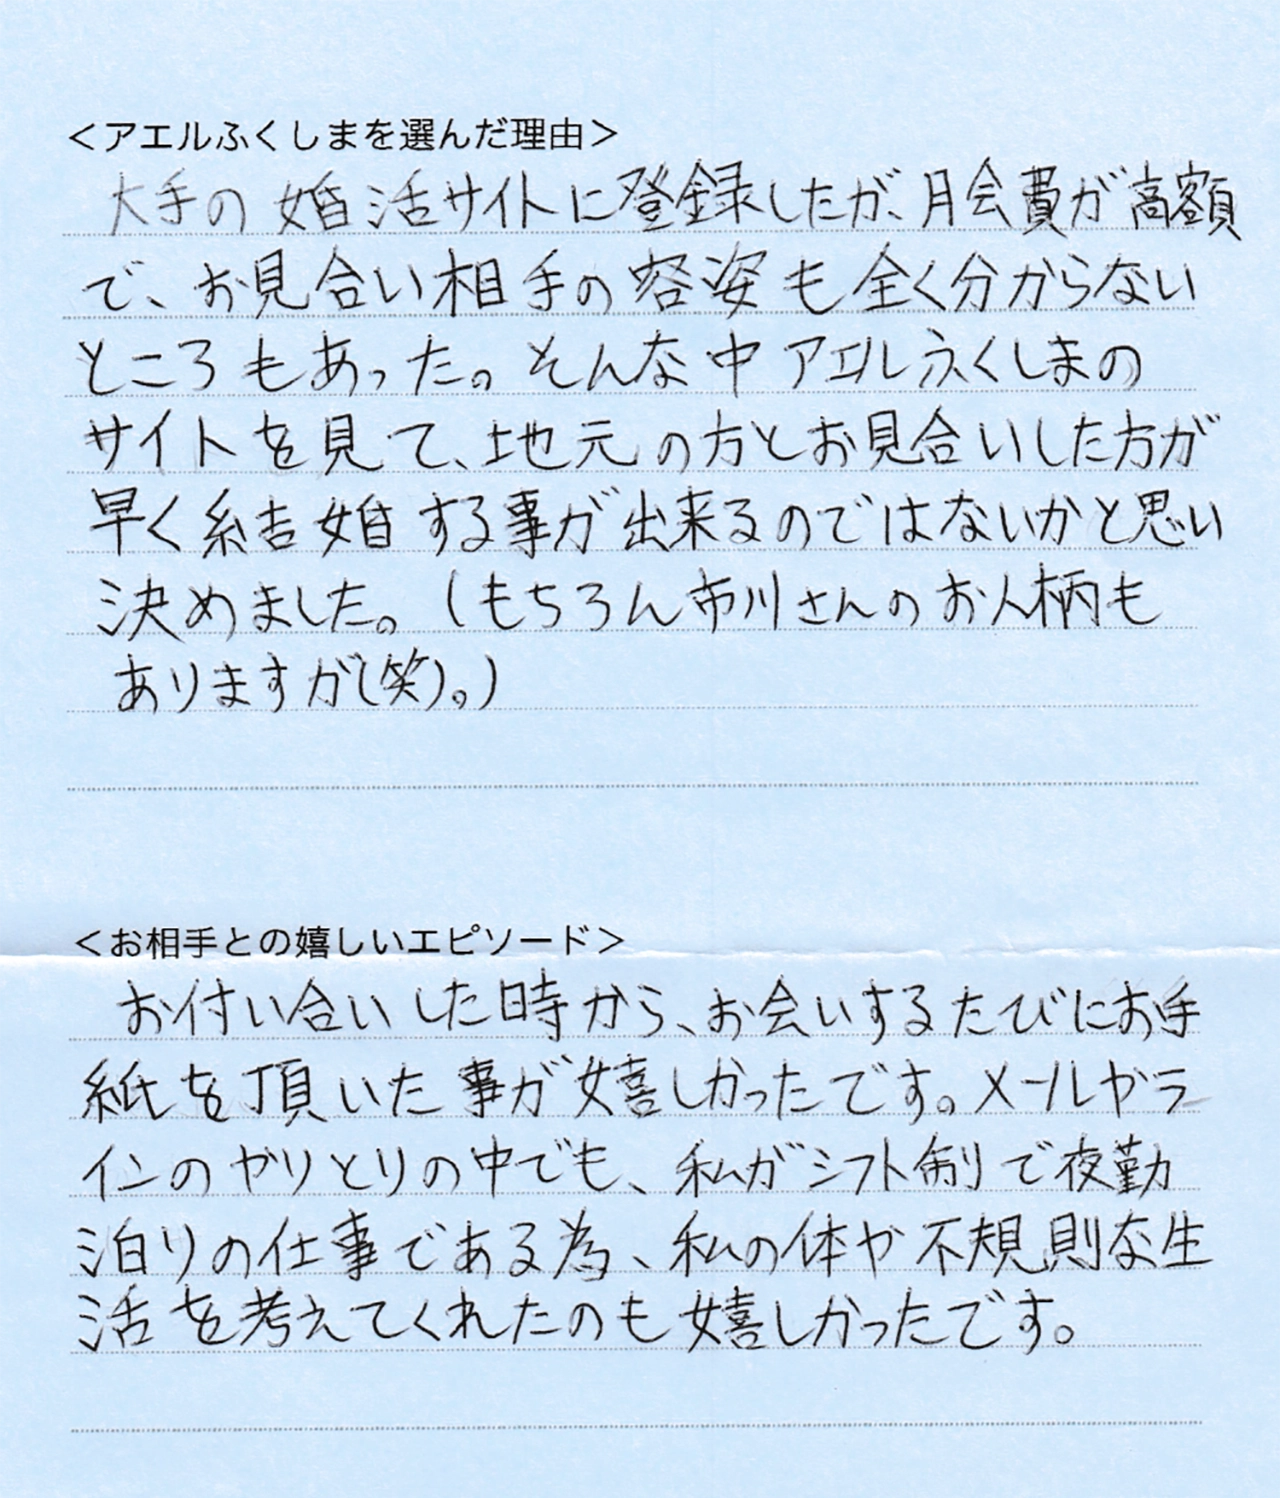 ＜アエルふくしまを選んだ理由＞
大手の婚活サイトに登録したが、月会費が高額
で、お見合い相手の容姿も全く分からない
ところもあった。そんな中アエルふくしまの
サイトを見て、地元の方とお見合いした方が
早く結婚する事が出来るのではないかと思い
決めました。（もちろん市川さんのお人柄も
ありますが(笑)。）
＜お相手との嬉しいエピソード＞
お付い合いした時から、お会いするたびにお手
紙を頂いた事が嬉しかったです。メールやラ
インのやりとりの中でも、私がシフト制で夜勤
泊りの仕事である為、私の体や不規則な生
活を考えてくれたのも嬉しかったです。